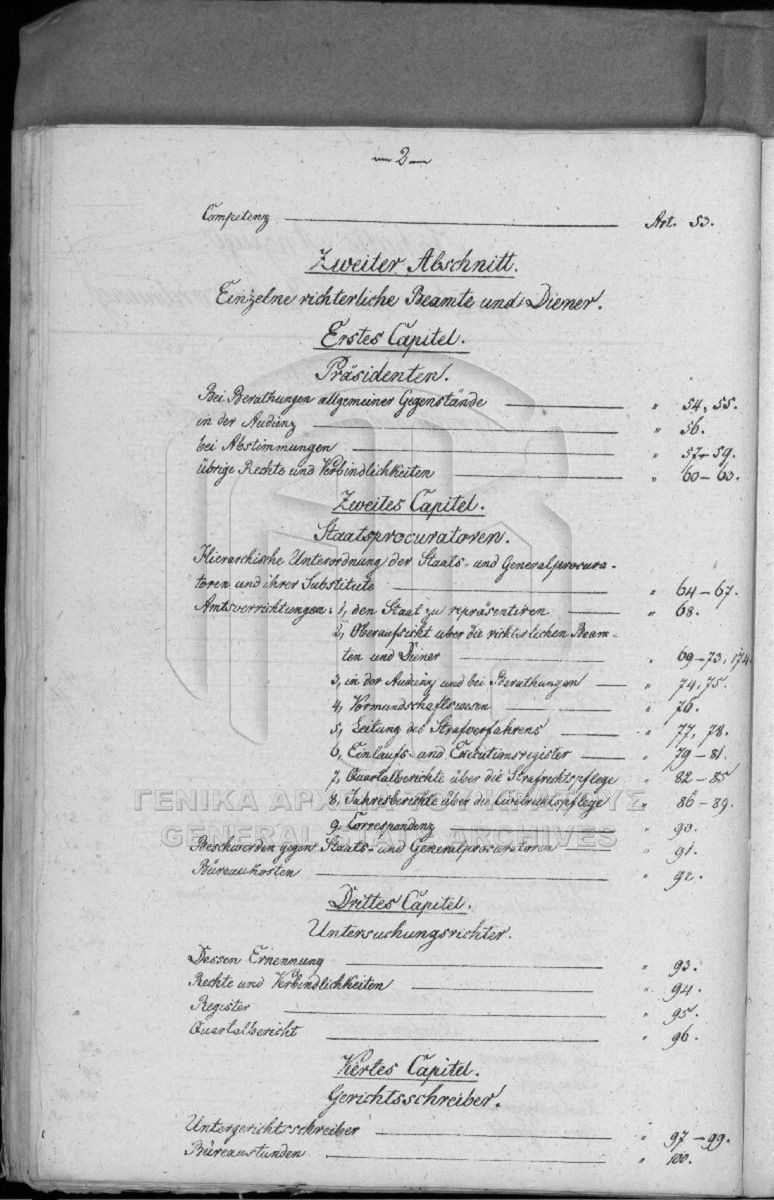 2
Competenz Art. 53.
Zweiter Abschnitt.
Einzelne richterliche Beamte und Diener.
Erstes Capitel.
Präsidenten.
Bei Berathungen allgemeiner Gegenstände " 54, 55.
in der Audienz " 56.
bei Abstimmungen " 57-59.
übrige Rechte und Verbindlichkeiten " 60-63.
Zweites Capitel.
Staatsprocuratoren.
Hierarchische Unterordnung der Staats- und Generalprocura-
toren und ihrer Substitute " 64-67.
Amtsverrichtungen: 1, den Staat zu repräsentiren " 68.
2, Oberaufsicht über die richterlichen Beam-
ten und Diener " 69-73, 174.
3, in der Audienz und bei Berathungen " 74, 75.
4, Vormundschaftswesen " 76.
5, Leitung des Strafverfahrens " 77, 78.
6, Einlaufs- und Executionsregister " 79-81.
7, Quartalberichte über die Strafrechtspflege " 82-85
8, Jahresberichte über die Civilrechtspflege " 86-89.
9, Correspondenz " 90.
ΓΕΝΙΚΑ ΑΡΧΕΙΑ ΤΟΥ ΚΡΑΤΟΥΣ
GENERAL STATE ARCHIVES
Beschwerden gegen Staats- und Generalprocuratoren " 91.
Büreaukosten " 92.
Drittes Capitel.
Untersuchungsrichter.
Dessen Ernennung " 93.
Rechte und Verbindlichkeiten " 94.
Register " 95.
Quartalbericht " 96.
Viertes Capitel.
Gerichtsschreiber.
Untergerichtsschreiber " 97-99.
Büreaustunden " 100.